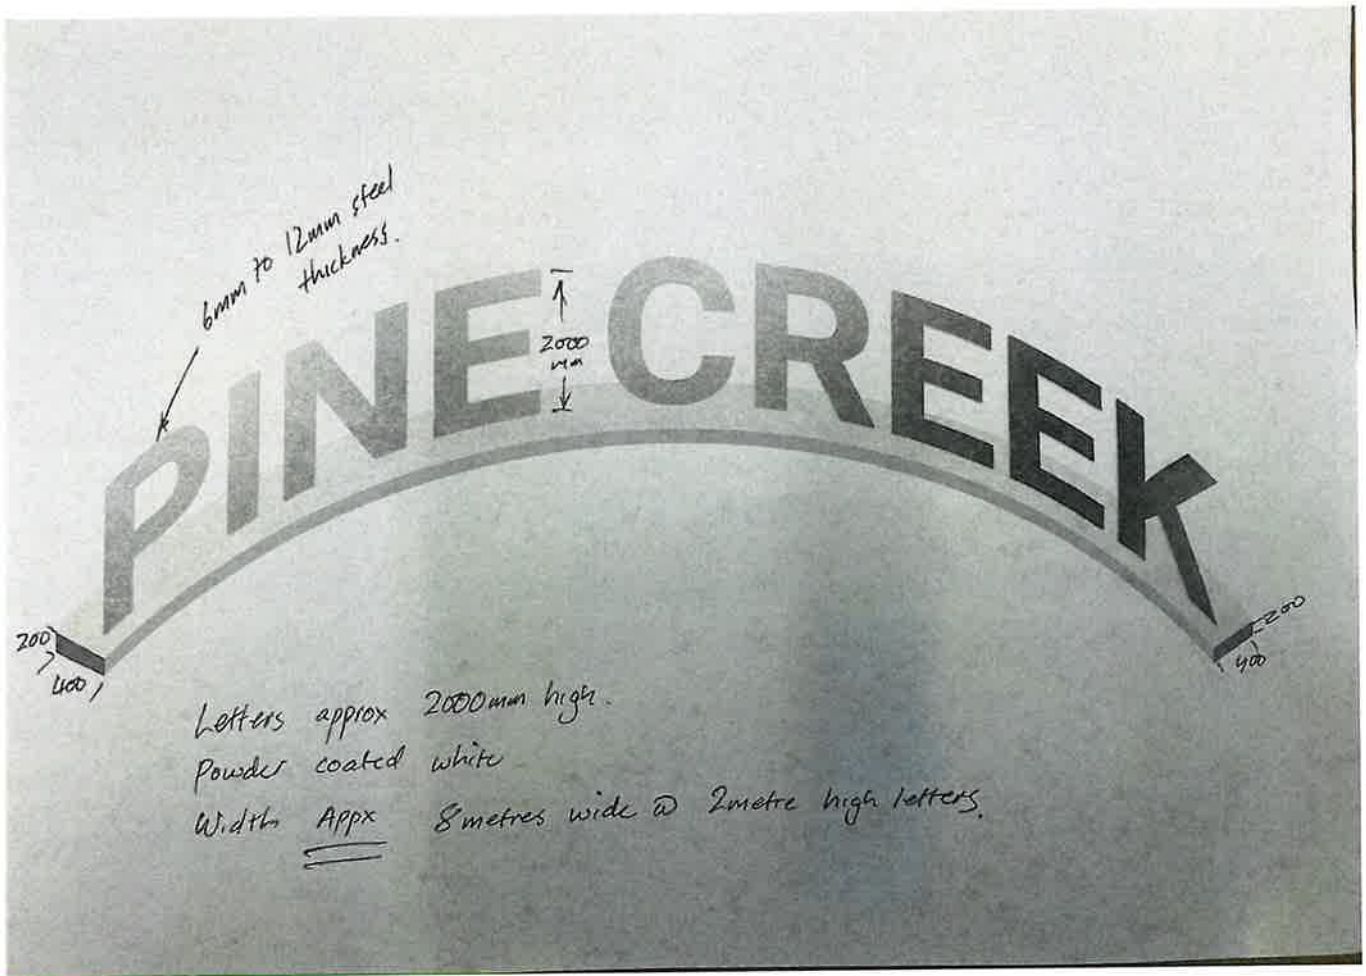 6mm to 12mm steel
thickness.
PINE CREEK
2000
mm
200
400
200
400
Letters approx 2000mm high.
Powder coated white
Width Appx 8metres wide @ 2metre high letters.